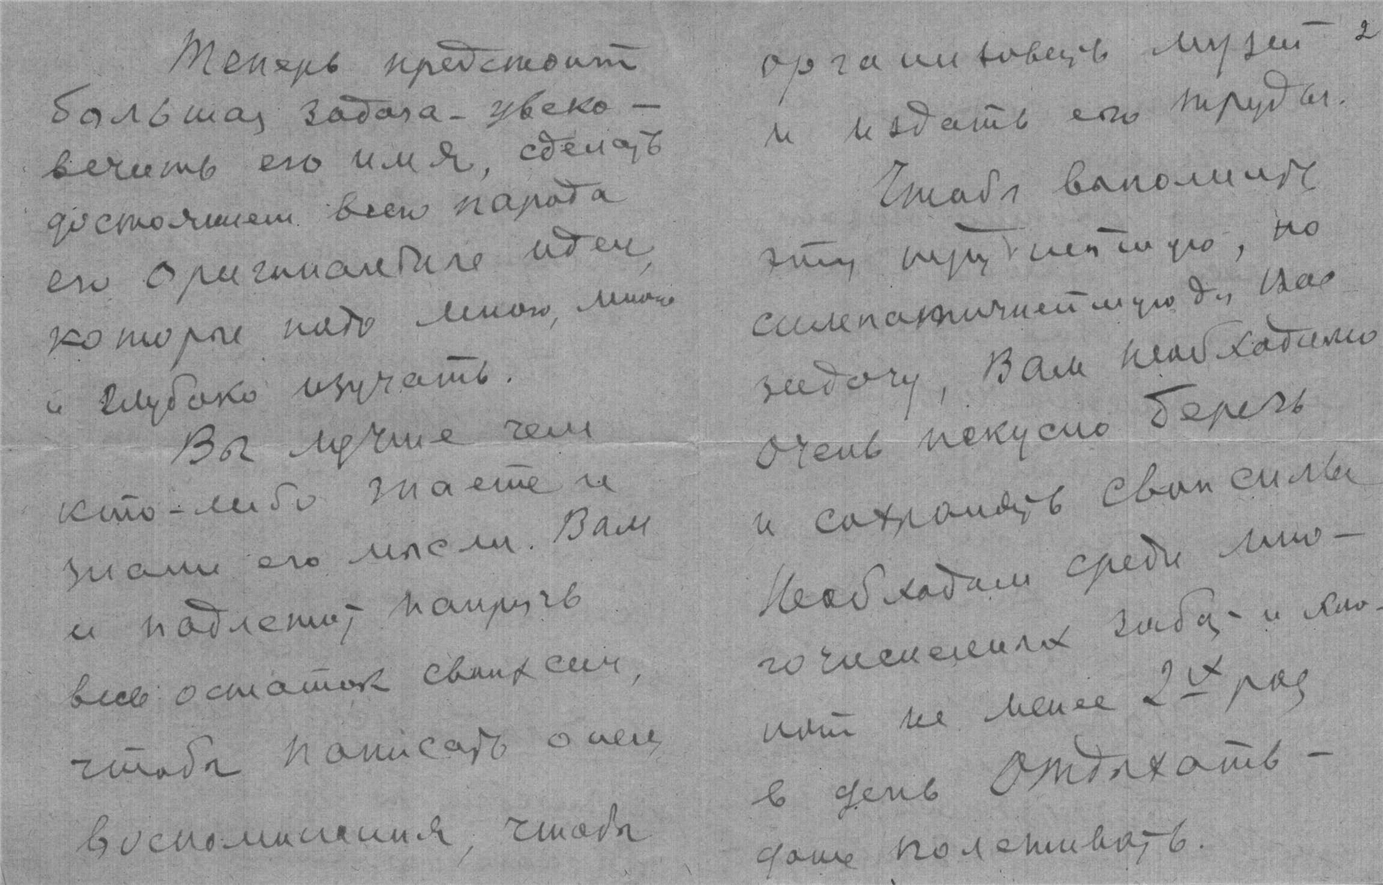 Теперь предстоит
большая задача – увеко-
вечить его имя, сделать
достоянием всего народа
его оригинальные идеи,
которые надо много, много
и глубоко изучать.
Вы лучше чем
кто-либо знаете и
знали его мысли. Вам
и надлежит напрячь
весь остаток своих сил,
чтобы написать о нем
воспоминания, чтобы
2
организовать музей
и издать его труды.
Чтобы выполнить
эту труднейшую, но
симпатичнейшую для Вас
задачу, Вам необходимо
очень искусно беречь
и сохранять свои силы
Необходим среди мно-
гочисленных забот и хло-
пот не менее 2х раз
в день отдыхать –
даже полеживать.